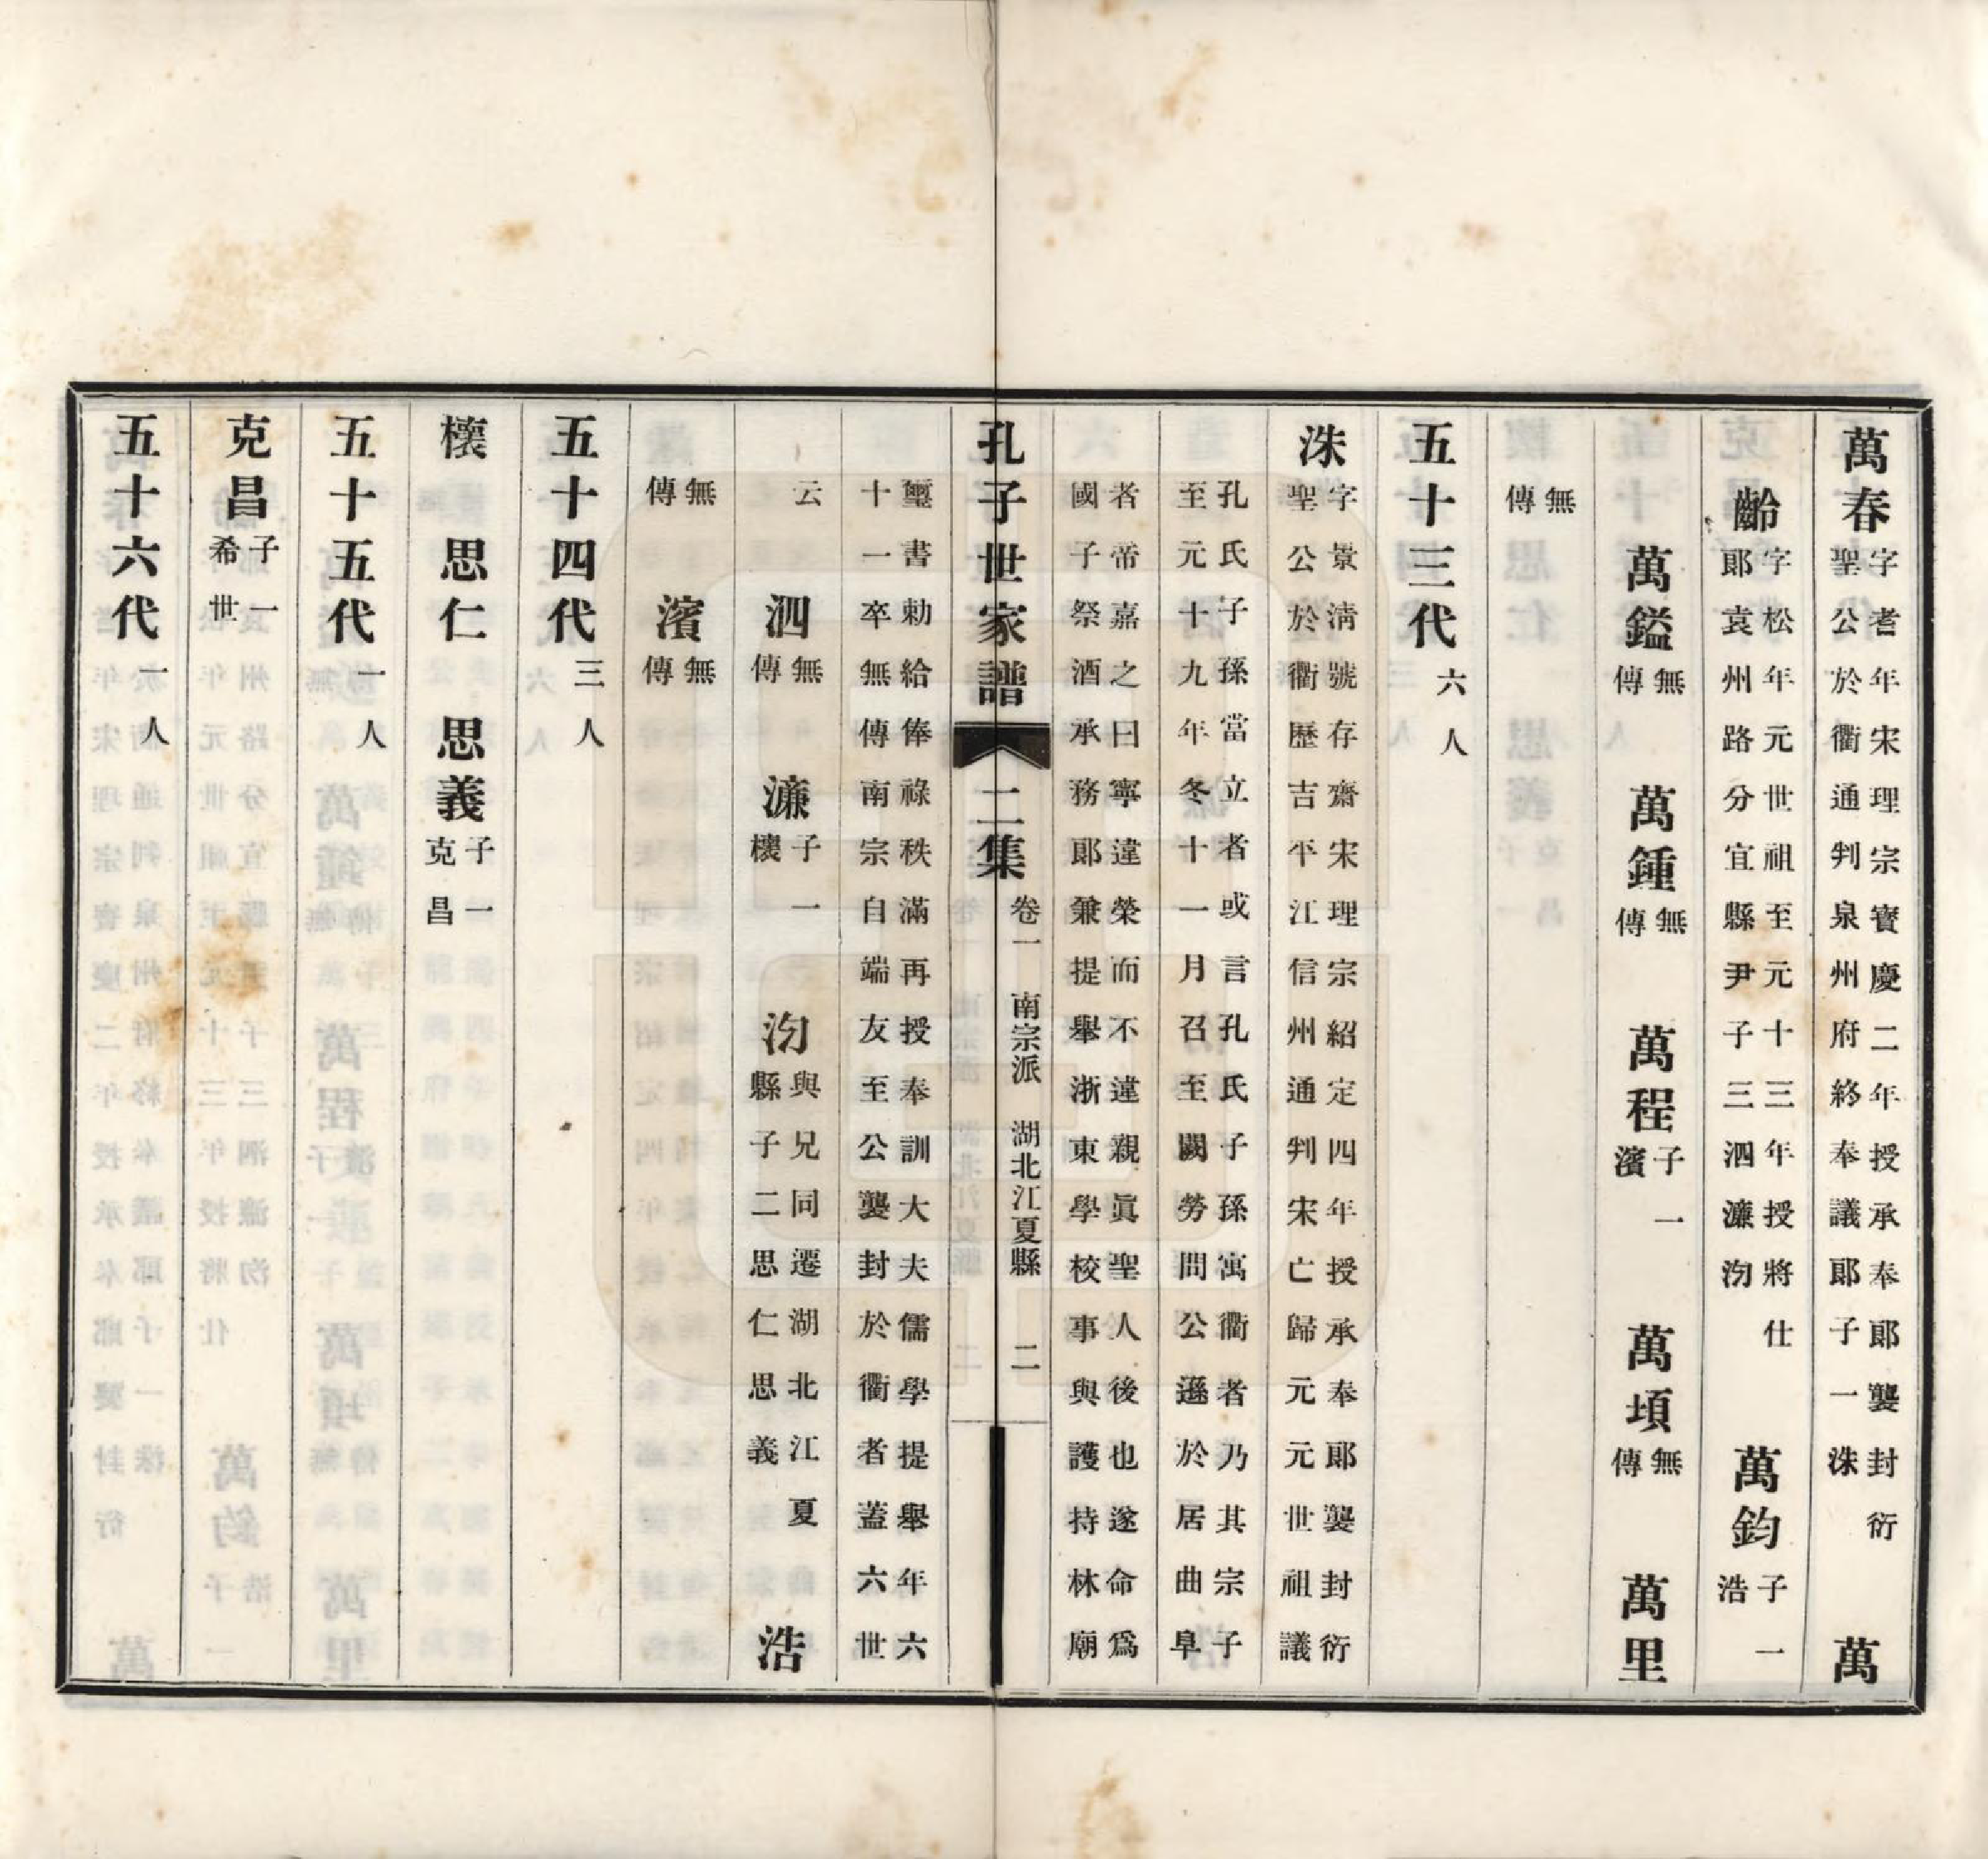 萬春字耆年宋理宗寶慶二年授承奉郞襲封衍聖公於衢通判泉州府終奉議郞子一洙　萬
齡字松年元世祖至元十三年授將仕郞袁州路分宜縣尹子三泗濂沕　萬鈞子一浩
萬鎰無傳　萬鍾無傳　萬程子一濱　萬頃無傳　萬里
無傳
五十三代六人
洙字景淸號存齋宋理宗紹定四年授承奉郞襲封衍聖公於衢歷吉平江信州通判宋亡歸元元世祖議
孔氏子孫當立者或言孔氏子孫寓衢者乃其宗子至元十九年冬十一月召至闕勞問公遜於居曲阜
者帝嘉之曰寧違榮而不違親眞聖人後也遂命爲國子祭酒承務郞兼提舉浙東學校事與護持林廟
孔子世家譜　二集　卷一　南宗派　湖北江夏縣　二
璽書勅給俸祿秩滿再授奉訓大夫儒學提舉年六十一卒無傳南宗自端友至公襲封於衢者蓋六世
云　泗無傳　濂子一㰐　沕與兄同遷湖北江夏縣子二思仁思義　浩
無傳　濱無傳
五十四代三人
㰐　思仁　思義子一克昌
五十五代一人
克昌子一希世
五十六代一人